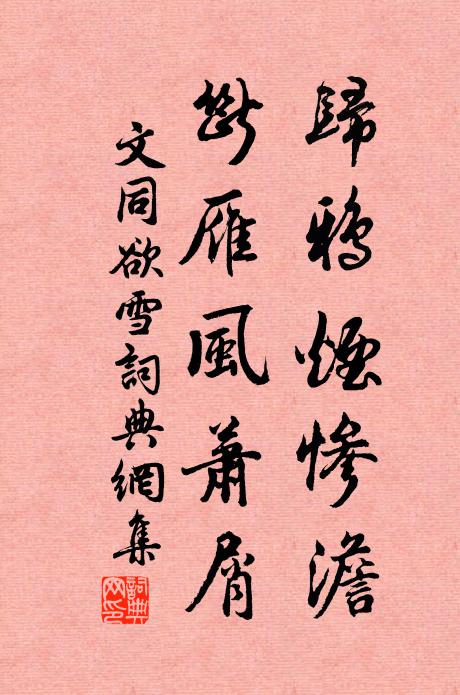 歸鴉煙慘澹
斷雁風蕭屑
文同欲雪詞典網集
詞典網印